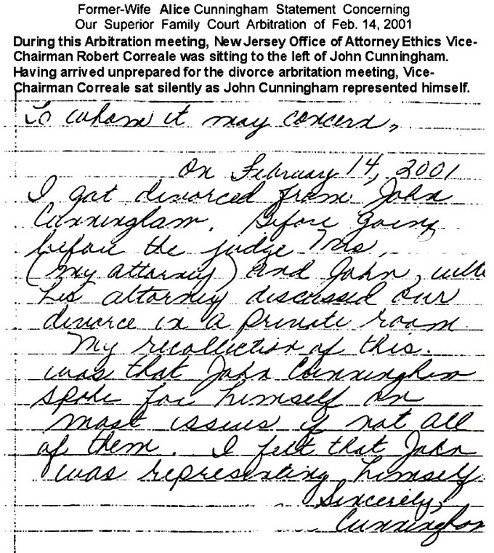 Former-Wife Alice Cunningham Statement Concerning
Our Superior Family Court Arbitration of Feb. 14, 2001
During this Arbitration meeting, New Jersey Office of Attorney Ethics Vice-
Chairman Robert Correale was sitting to the left of John Cunningham.
Having arrived unprepared for the divorce arbritation meeting, Vice-
Chairman Correale sat silently as John Cunningham represented himself.
To whom it may concern,
On February 14, 2001
I got divorced from John
Cunningham. Before going
before the judge Ms.
(my attorney) and John, with
his attorney discussed our
divorce in a private room
My recollection of this.
was that John Cunningham
spoke for himself on
most issues if not all
of them. I felt that John
was representing himself.
Sincerely,
Cunningham